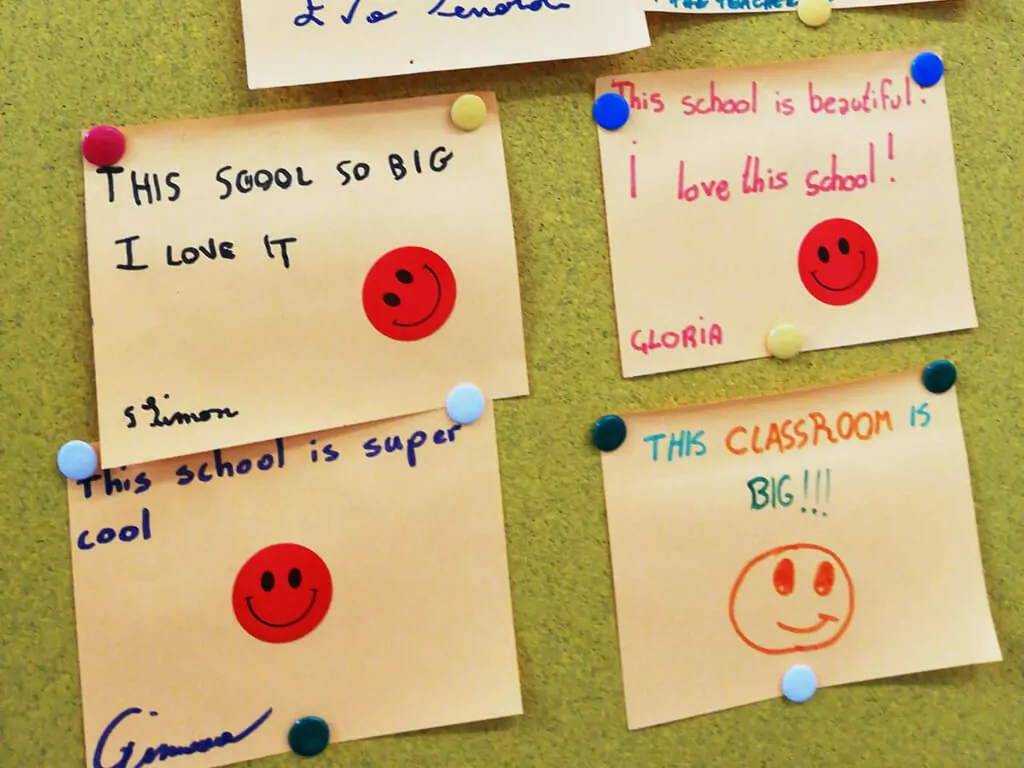 THE TEACHER
THIS SGOOL SO BIG
I LOVE IT
This school is beautiful!
I love this school!
GLORIA
This school is super
cool
THIS CLASSROOM IS
BIG!!!